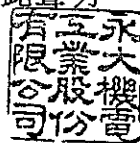 永大機電
工業股份
有限公司